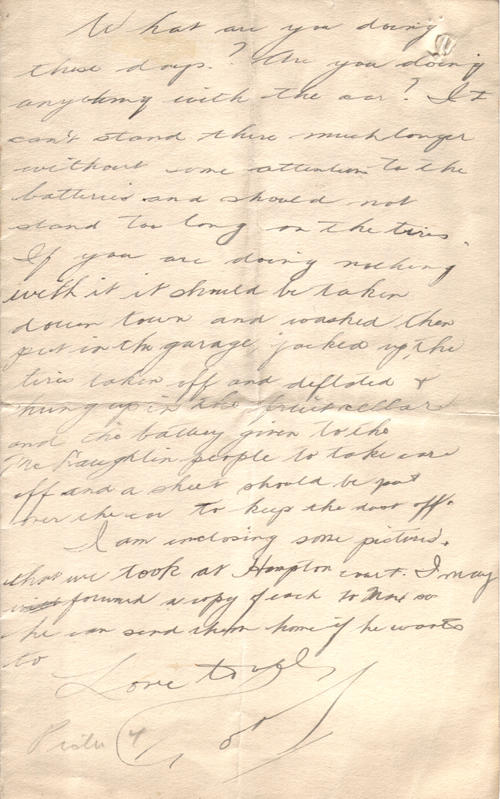 What are you doing
these days? Are you doing
anything with the car? It
can't stand there much longer
without some attention to the
batteries and should not
stand too long on the tires.
If you are doing nothing
with it it should be taken
down town and washed then
put in the garage, jacked up the
tires taken off and deflated &
hung up in the fruit cellar
and the battery given to the
McLaughlin people to take care
off and a sheet should be put
over the car to keep the dust off.
I am enclosing some pictures.
that we took at Hampton court. I may
forward a copy of each to Max so
he can send them home if he wants
to
Love to all